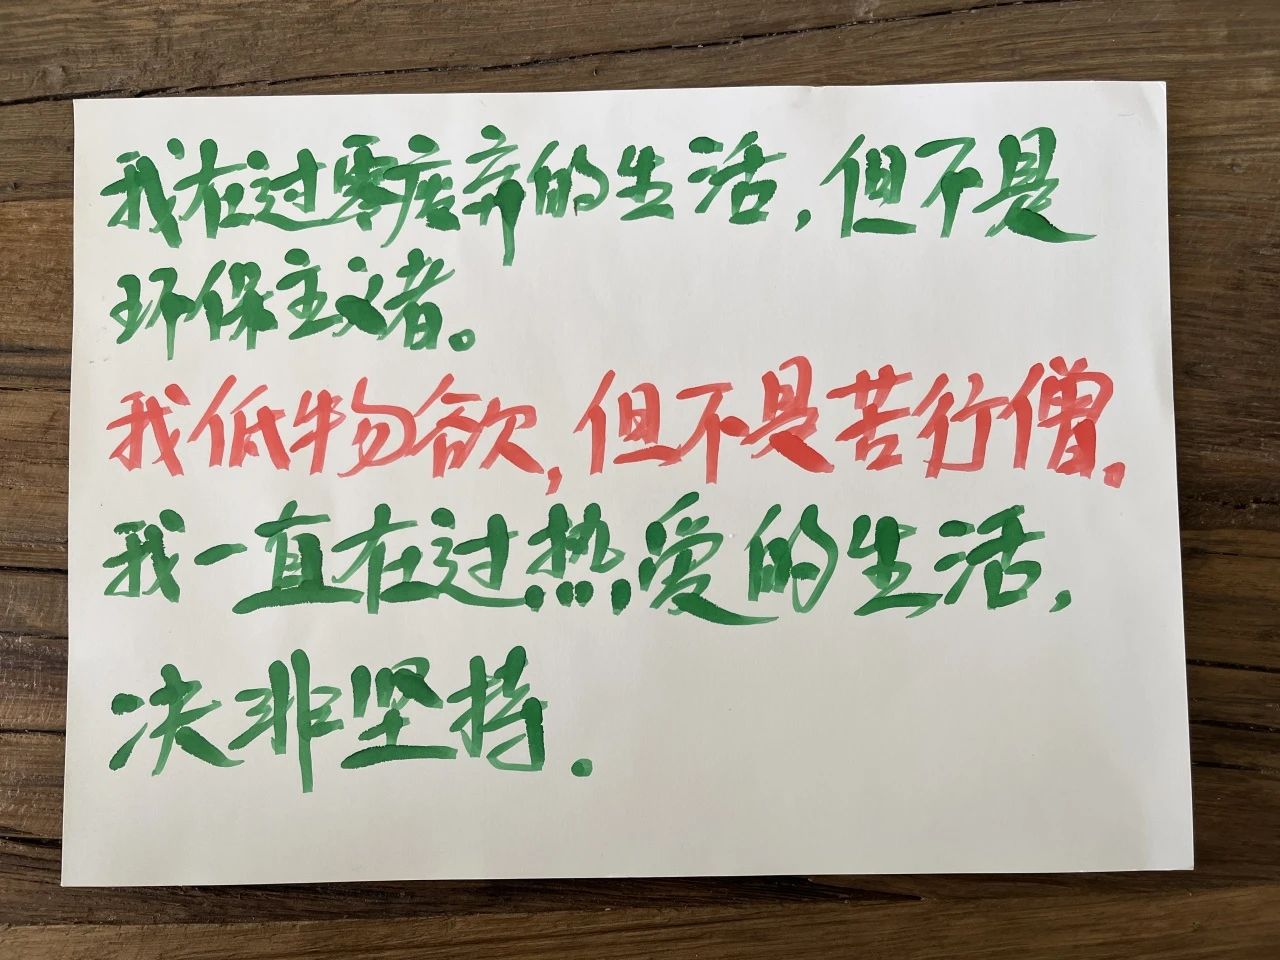 我在过零废弃的生活,但不是
环保主义者。
我低物欲,但不是苦行僧.
我一直在过热爱的生活,
决非坚持.